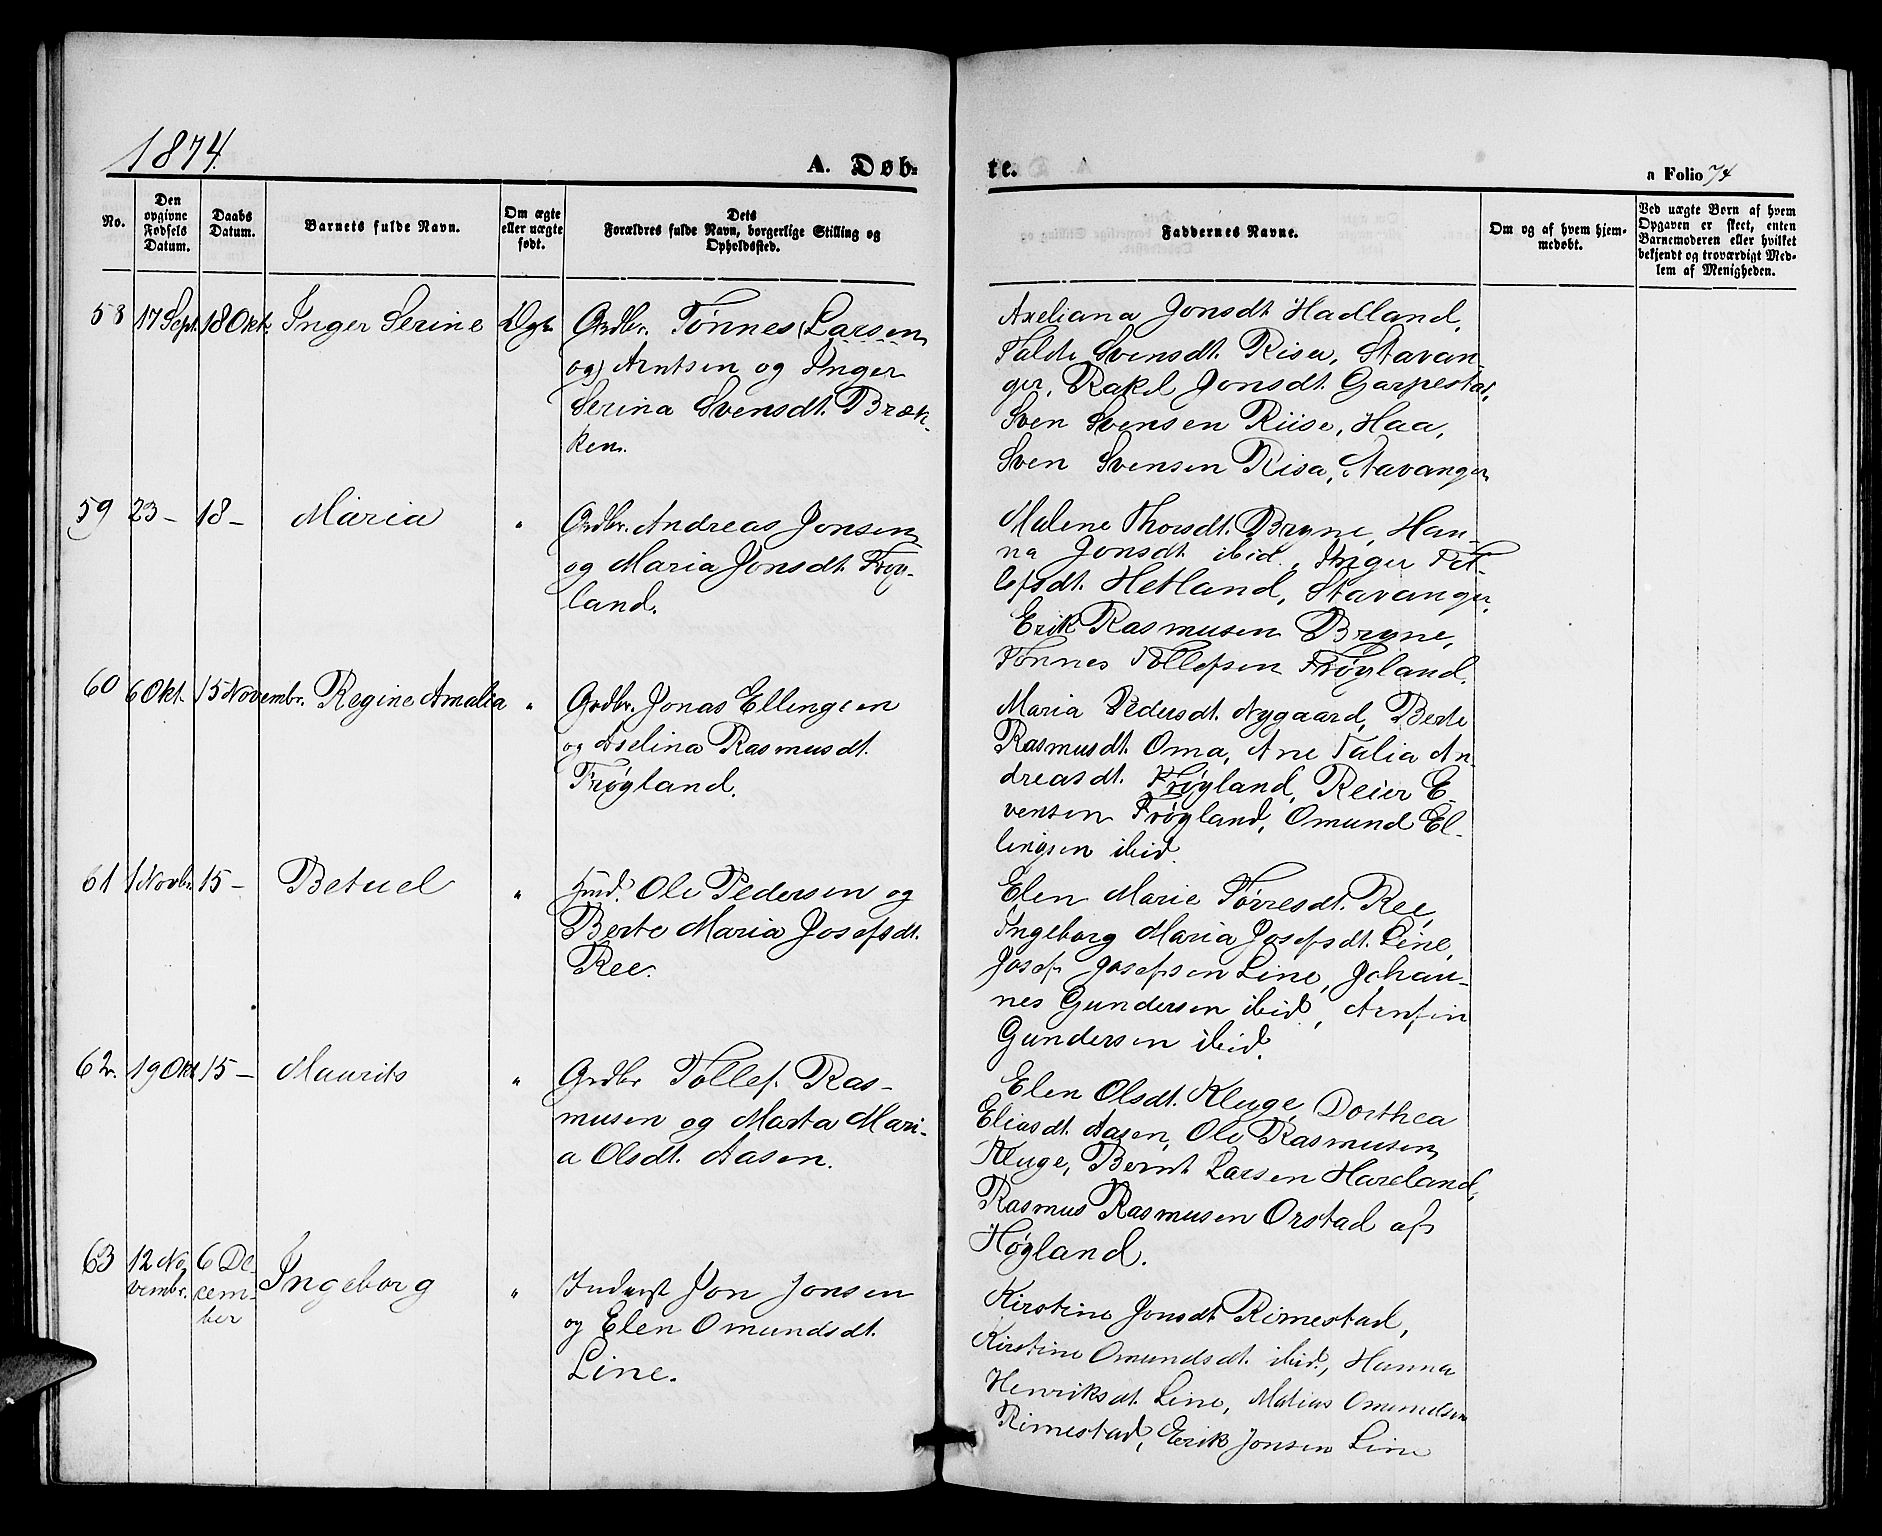 1874.
A. Døb-
te.
a Folio 74
No.
Den opgivne Fødsels Datum.
Daabs Datum.
Barnets fulde Navn.
Om ægte eller uægte født.
Dets Forældres fulde Navn, borgerlige Stilling og Opholdssted.
Faddernes Navne.
Om og af hvem hjem-
medøbt.
Ved uægte Børn af hvem
Opgaven er skeet, enten
Barnemoderen eller hvilket
bekjendt og troværdigt Med-
lem af Menigheden.
58 17 Sept. 18 Okt. Inger Serine Ægte Grdbr. Tønnes (Larsen
og) Arntsen og Inger
Serina Svensdt. Bræk-
ken.
Axeliana Jonsdt Hadland,
Talde Svensdt. Risa, Stavan-
ger, Rakel Jonsdt. Garpestad,
Sven Svensen Riise, Haa,
Sven Svensen Risa, Stavanger
59 23 - 18 - Maria " Grdbr. Andreas Jonsen
og Maria Jonsdt. Frøy-
land.
Malene Thorsdt. Bryne, Han-
na Jonsdt ibid., Inger Tit-
lefsdt. Hetland, Stavanger,
Erik Rasmusen Bryne,
Tønnes Tollefsen Frøyland.
60 6 Okt. 15 Novembr. Regine Amalia " Grdbr. Jonas Ellingsen
og Aselina Rasmusdt.
Frøyland.
Maria Pedersdt. Nygaard, Berte
Rasmusdt. Oma, Ane Talia An-
dreasdt. Frøyland, Reier E-
vensen Frøyland, Omund El-
lingsen ibid.
61 1 Novbr. 15 - Betuel " Indr. Ole Pedersen og
Berte Maria Josefsdt.
Ree.
Elen Marie Tørresdt. Ree,
Ingeborg Maria Josefsdt. Line,
Josef Josefsen Line, Johan-
nes Gundersen ibid, Arnfin
Gundersen ibid.
62. 19 Okt 15 - Maurits " Grdbr Tollef Ras-
musen og Marta Mari-
a Olsdt. Aasen.
Elen Olsdt. Kluge, Dorthea
Eliasdt. Aasen, Ole Rasmusen
Kluge, Bernt Larsen Hareland,
Rasmus Rasmusen Orstad af
Høyland.
63 12 No- 6 De- Ingeborg " Inderst Jon Jonsen
vembr. cem-
ber
og Elen Omundsdt.
Line.
Kirstine Jonsdt Rimestad,
Kirstine Omundsdt. ibid., Hanna
Henriksdt. Line, Matias Omundsen
Rimestad, Erik Jonsen Line